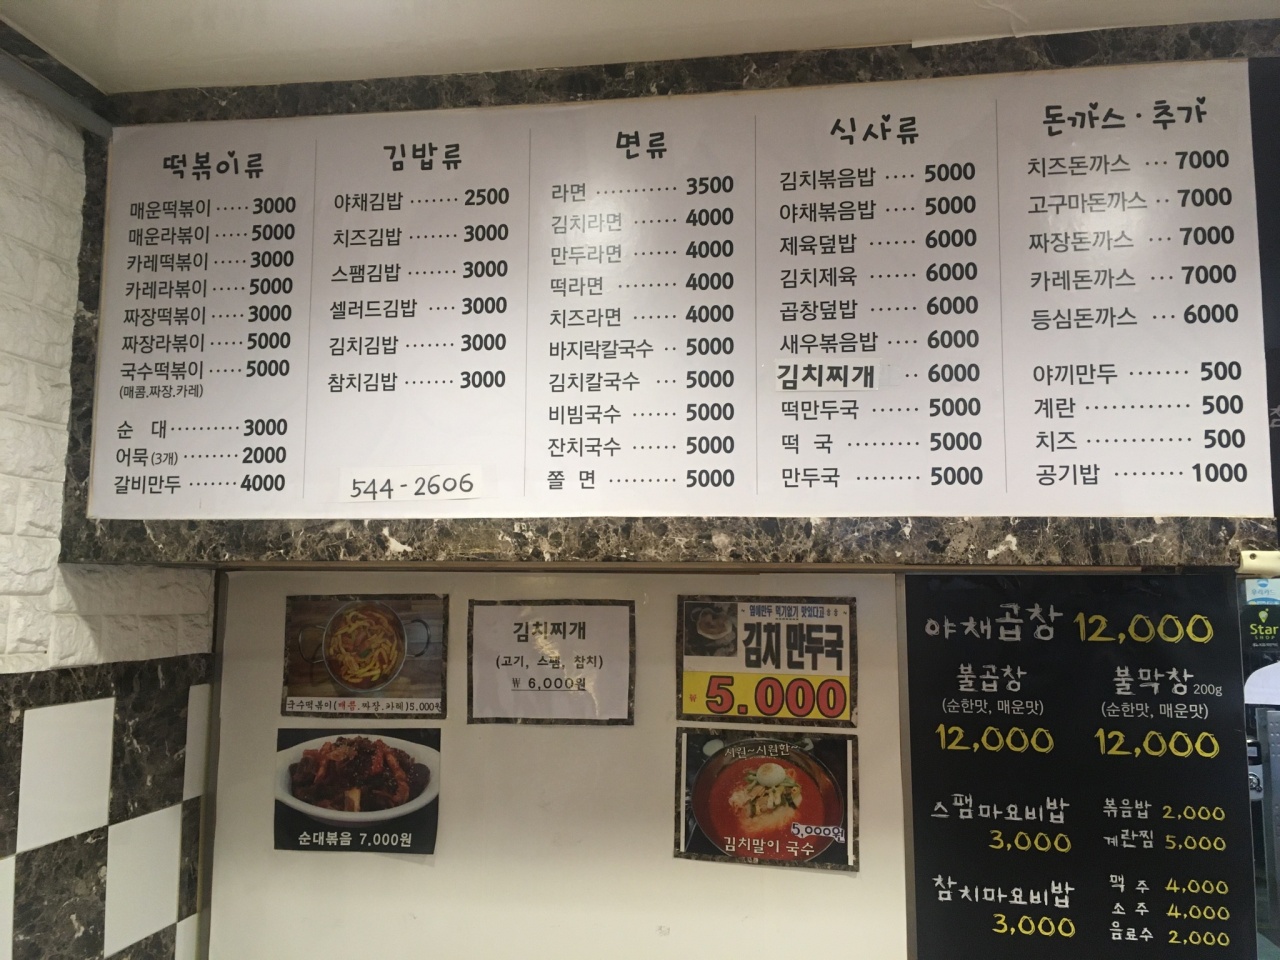 떡볶이류
매운떡볶이 ····· 3000
매운라볶이 ····· 5000
카레떡볶이 ····· 3000
카레라볶이 ····· 5000
짜장떡볶이 ····· 3000
짜장라볶이 ····· 5000
국수떡볶이 ····· 5000
(매콤.짜장.카레)
순 대 ··········· 3000
어묵(3개) ········ 2000
갈비만두 ······· 4000
김밥류
야채김밥 ······· 2500
치즈김밥 ······· 3000
스팸김밥 ······· 3000
셀러드김밥 ···· 3000
김치김밥 ······· 3000
참치김밥 ······· 3000
544-2606
면류
라면 ··········· 3500
김치라면 ······· 4000
만두라면 ······· 4000
떡라면 ········· 4000
치즈라면 ······· 4000
바지락칼국수 ·· 5000
김치칼국수 ··· 5000
비빔국수 ······· 5000
잔치국수 ······· 5000
쫄 면 ·········· 5000
식사류
김치볶음밥 ···· 5000
야채볶음밥 ···· 5000
제육덮밥 ······ 6000
김치제육 ······ 6000
곱창덮밥 ······ 6000
새우볶음밥 ···· 6000
김치찌개 ·· 6000
떡만두국 ······ 5000
떡 국 ········· 5000
만두국 ········ 5000
돈까스·추가
치즈돈까스 ··· 7000
고구마돈까스 ·· 7000
짜장돈까스 ··· 7000
카레돈까스 ··· 7000
등심돈까스 ··· 6000
야끼만두 ········ 500
계란 ············ 500
치즈 ············ 500
공기밥 ········ 1000
국수떡볶이(매콤.짜장.카레)5,000원
순대볶음 7,000원
김치찌개
(고기, 스팸, 참치)
₩ 6,000원
김치만두국
₩ 5.000
시원~시원한~
5,000원
김치말이 국수
야채곱창 12,000
불곱창
(순한맛, 매운맛)
12,000
불막창 200g
(순한맛, 매운맛)
12,000
스팸마요비밥
3,000
참치마요비밥
3,000
볶음밥 2,000
계란찜 5,000
맥 주 4,000
소 주 4,000
음료수 2,000
Star